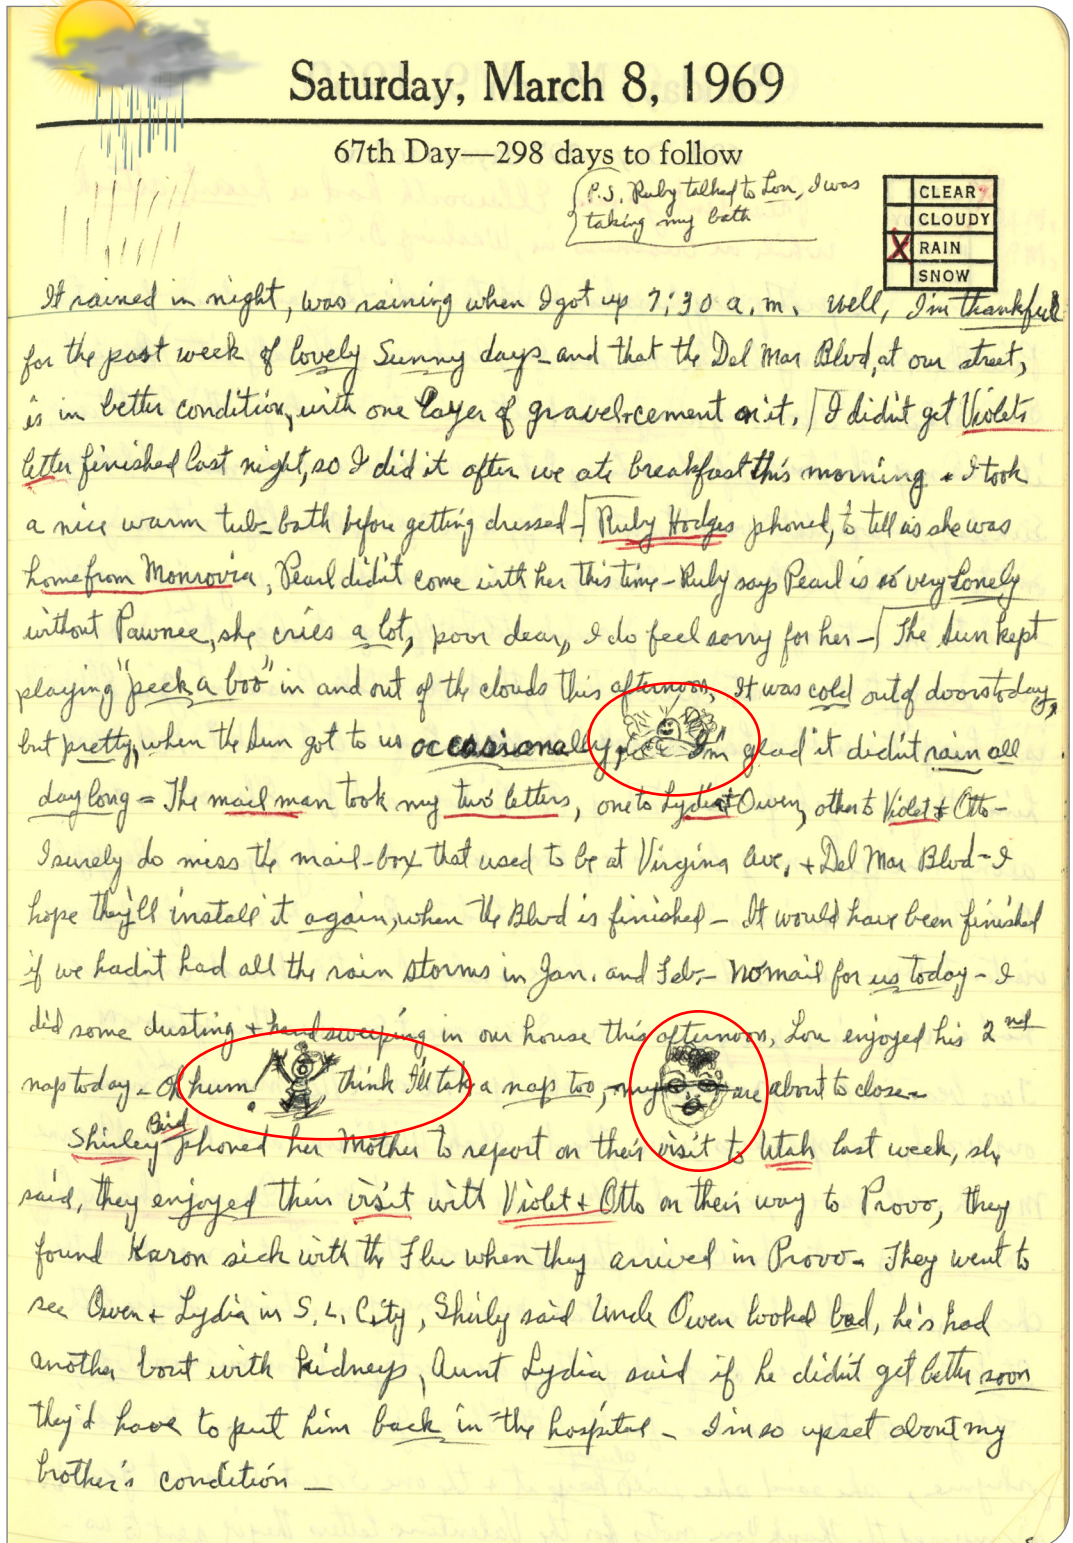 Saturday, March 8, 1969
67th Day—298 days to follow
P.S. Ruby talked to Lou, I was
taking my bath
CLEAR
CLOUDY
X RAIN
SNOW
It rained in night, was raining when I got up 7:30 a.m. well, I'm thankful
for the past week of lovely Sunny days and that the Del Mar Blvd, at our street,
is in better condition, with one layer of gravel+cement on it. I didn't get Violets
letter finished last night, so I did it after we ate breakfast this morning - I took
a nice warm tub-bath before getting dressed - Ruby Hodges phoned, to tell us she was
home from Monrovia, Pearl didn't come with her this time - Ruby says Pearl is so very Lonely
without Pawnee, she cries a lot, poor dear, I do feel sorry for her - The Sun kept
playing "peek a boo" in and out of the clouds this afternoon, It was cold out of doors today,
but pretty, when the Sun got to us occasionally, I'm glad it didn't rain all
day long = The mail man took my two letters, one to Lydia + Owen, other to Violet + Otto -
I surely do miss the mail-box that used to be at Virginia Ave, + Del Mar Blvd - I
hope they'll install it again, when the Blvd is finished - It would have been finished
if we hadn't had all the rain storms in Jan. and Feb. - No mail for us today - I
did some dusting + hand sweeping in our house this afternoon, Lou enjoyed his 2nd
nap today - Oh hum think I'll take a nap too, my are about to close -
Shirley Bird phoned her Mother to report on their visit to Utah last week, she
said, they enjoyed their visit with Violet + Otto on their way to Provo, they
found Karon sick with the Flu when they arrived in Provo - They went to
see Owen + Lydia in S. L. City, Shirly said Uncle Owen looked bad, he's had
another bout with kidneys, Aunt Lydia said if he didn't get better soon
they'd have to put him back in the hospital - I'm so upset about my
brother's condition -